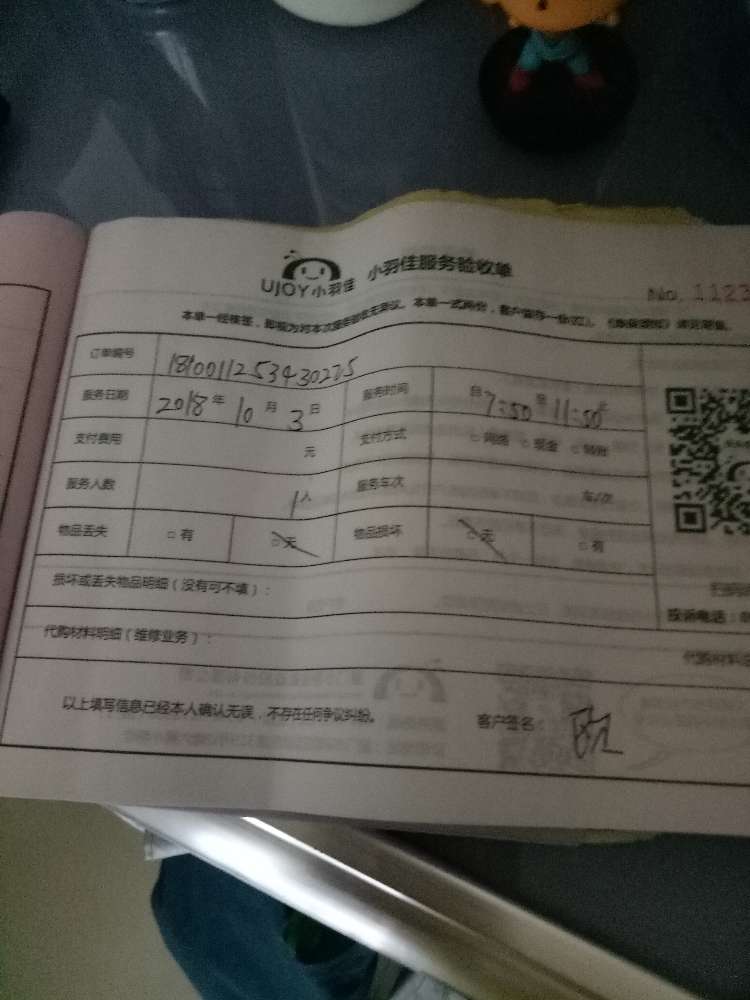 UJOY小羽佳 小羽佳服务验收单
No. 1123
本单一经接签，即视为对本次服务验收无异议。本单一式两份，客户留存一份
订单编号
服务日期 2018年10月3日 服务时间 自7:50至11:50
支付费用 元 支付方式 □网络 □现金 □转账
服务人数 1人 服务车次 车/次
物品丢失 □有 □无 物品损坏 □无 □有
损坏或丢失物品明细（没有可不填）：
投诉电话：
代购材料明细（维修业务）：
以上填写信息已经本人确认无误，不存在任何争议纠纷。 客户签名：